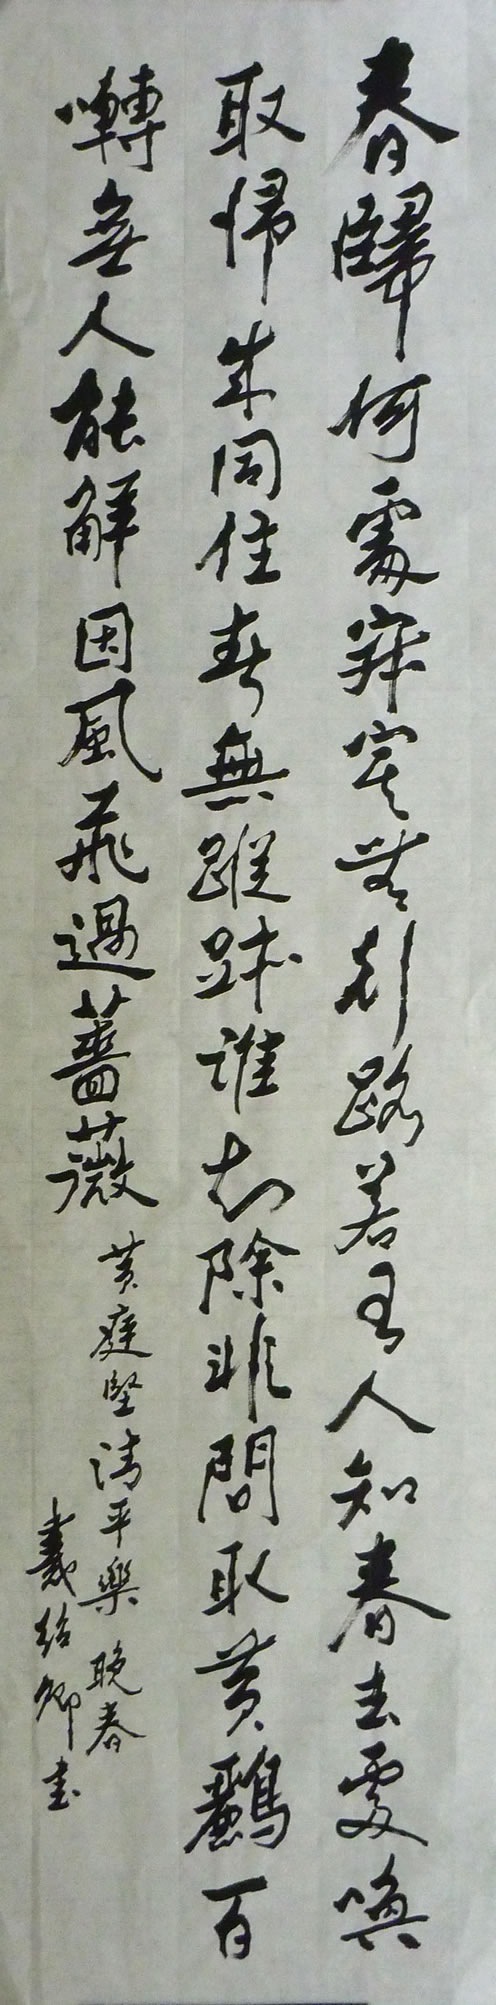 春歸何處寂寞無行路若有人知春去處喚
取歸來同住春無蹤跡誰知除非問取黄鸝百
囀無人能解因風飛過薔薇
黄庭堅清平樂 晚春
戴紹卿書